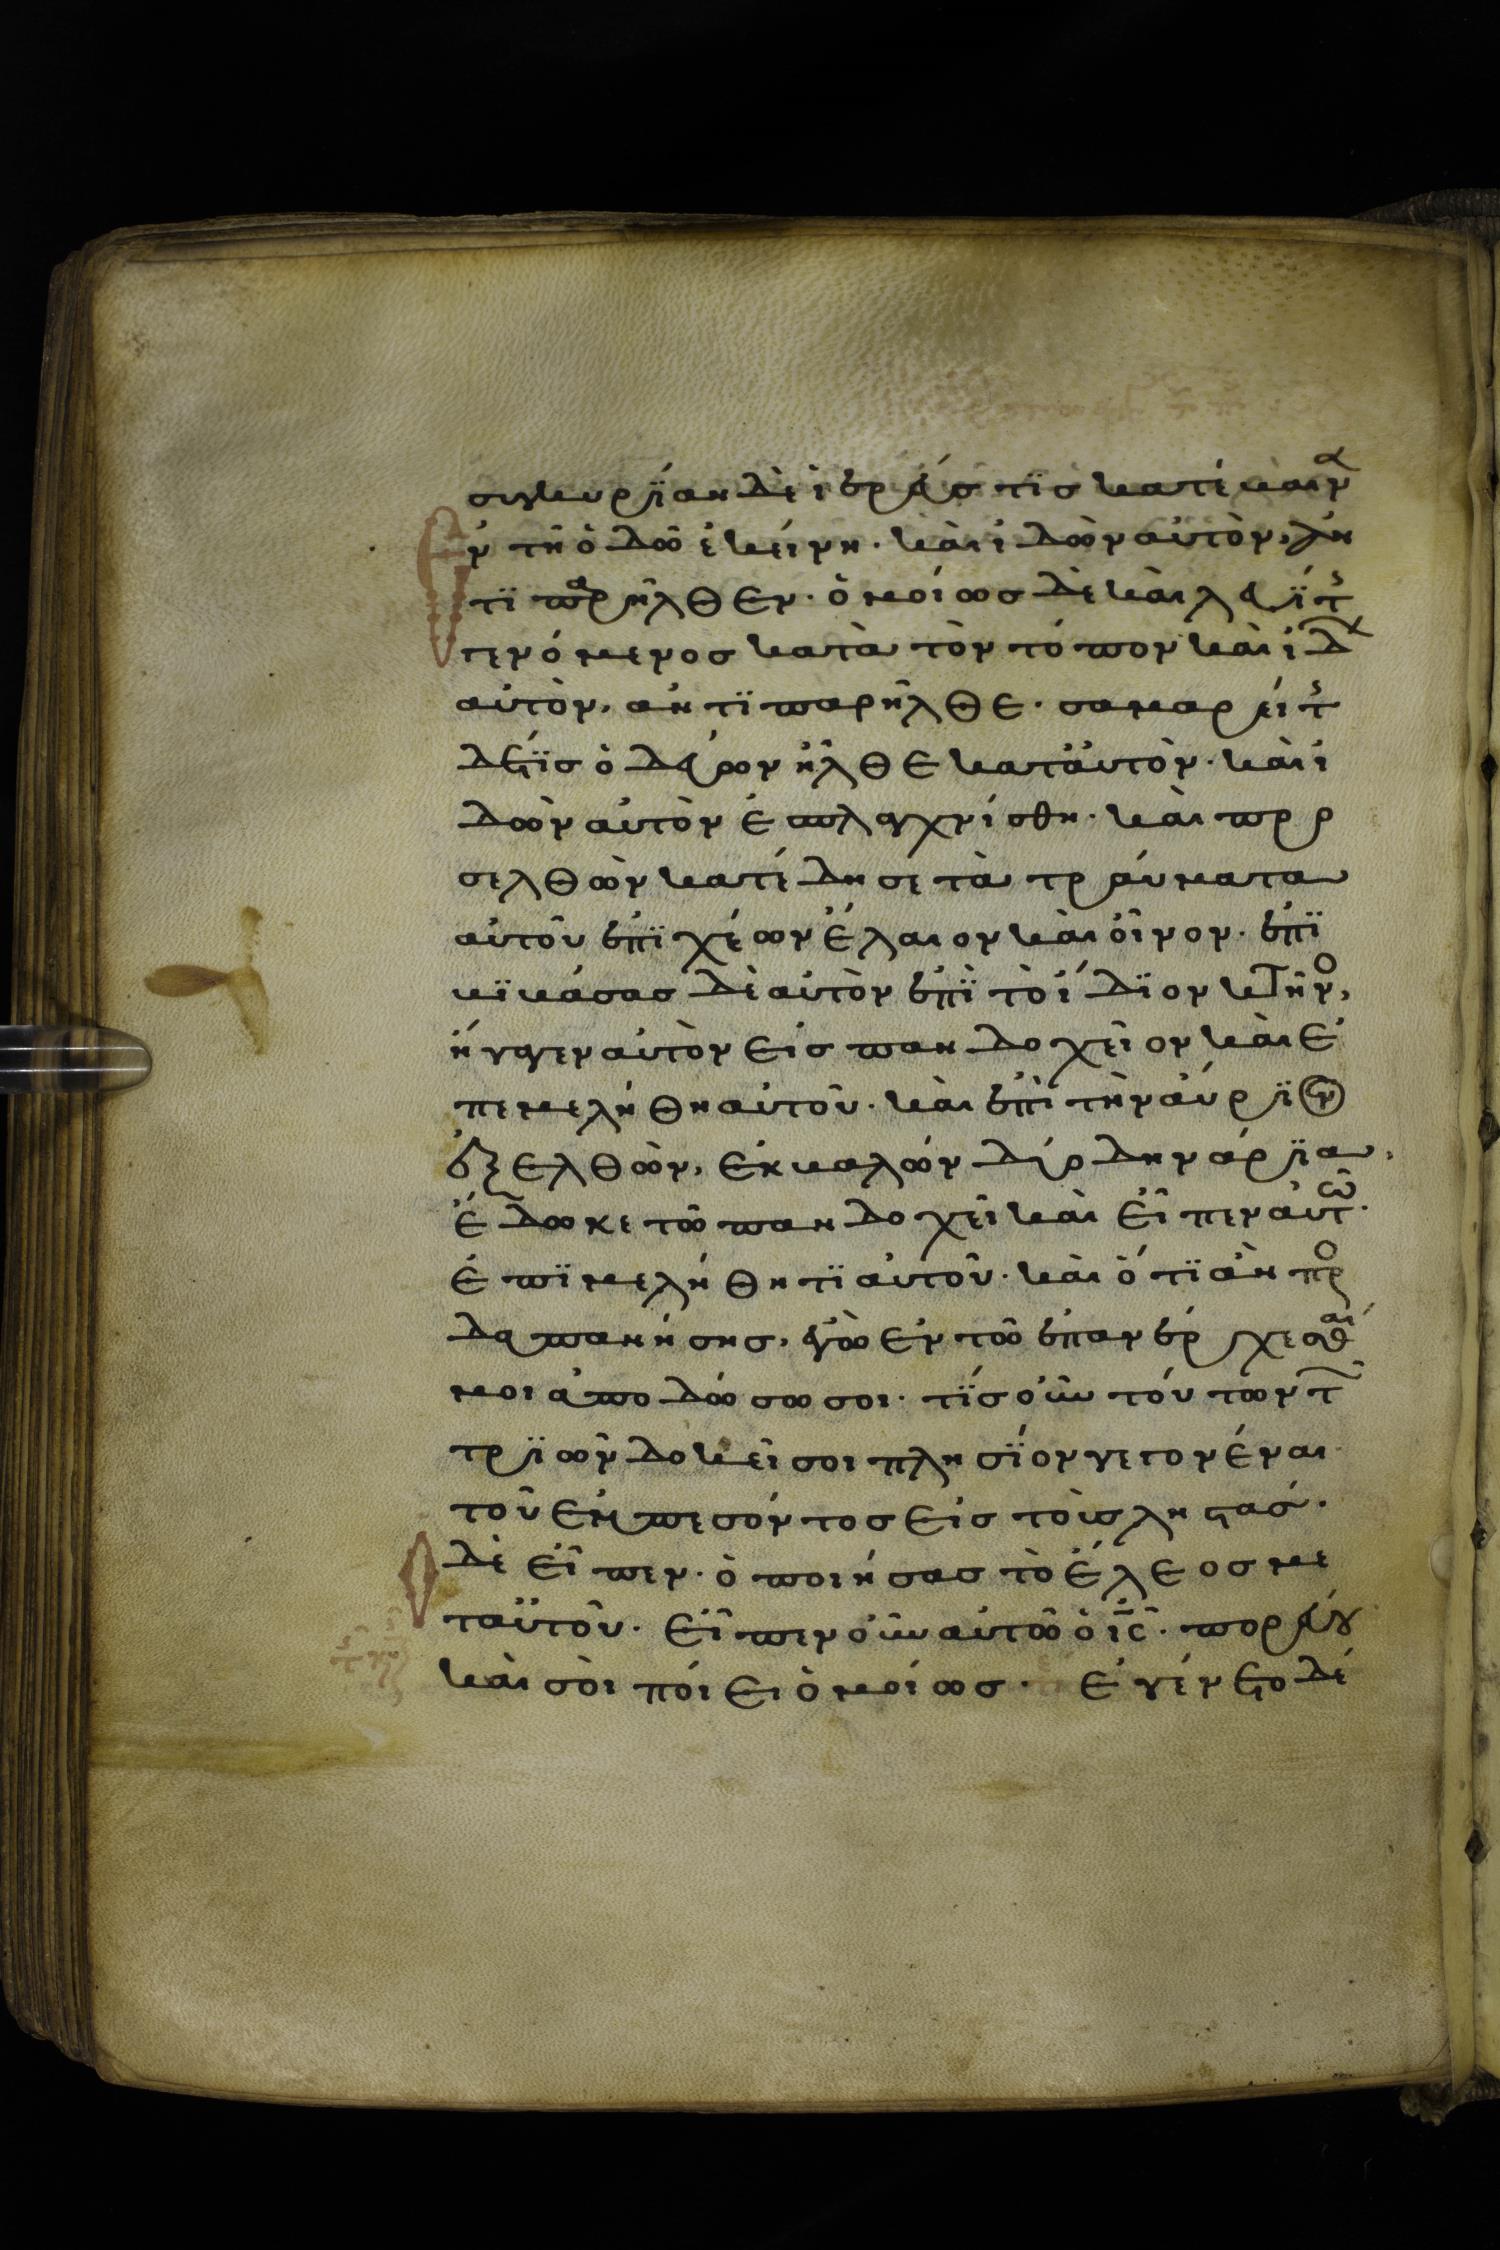 συγκυρίαν δὲ ἱερεύς τίς κατέβαιν
ἐν τῆ ὁδῶ ἐκείνη· καὶ ἰδὼν αὐτὸν, ἀν
τιπαρῆλθεν· ὁμοίως δὲ καὶ λευΐτ
γενόμενος κατὰ τὸν τόπον καὶ ἰδ
αὐτὸν, ἀντιπαρῆλθε· σαμαρείτ
δέ τις ὁδεύων ἦλθε κατ' αὐτὸν· καὶ ἰ
δὼν αὐτὸν ἐσπλαγχνίσθη· καὶ προ
σελθὼν κατέδησε τὰ τραύματα
αὐτοῦ ἐπιχέων ἔλαιον καὶ οἶνον· ἐπι
βιβάσας δὲ αὐτὸν ἐπὶ τὸ ἴδιον κτῆνο,
ἤγαγεν αὐτὸν εἰς πανδοχεῖον καὶ ἐ
πεμελήθη αὐτοῦ· καὶ ἐπὶ τὴν αὔριον
ἐξελθὼν, ἐκβαλὼν δύο δηνάρια,
ἔδωκε τῶ πανδοχεῖ καὶ εἶπεν αὐτῶ·
ἐπιμελήθητι αὐτοῦ· καὶ ὅτι ἂν προ
δαπανήσης, ἐγὼ ἐν τῶ ἐπανέρχεσθαί
μοι ἀποδώσω σοι· τίς οὖν τούτων τ
τριῶν δοκεῖ σοι πλησίον γεγονέναι
τοῦ ἐμπεσόντος εἰς τοὺς ληστάς·
Ὁ δὲ εἶπεν· ὁ ποιήσας τὸ ἔλεος με
τ' αὐτοῦ· εἶπεν οὖν αὐτῶ ὁ ις· πορεύου
καὶ σὺ ποίει ὁμοίως· ἐγένετο δέ